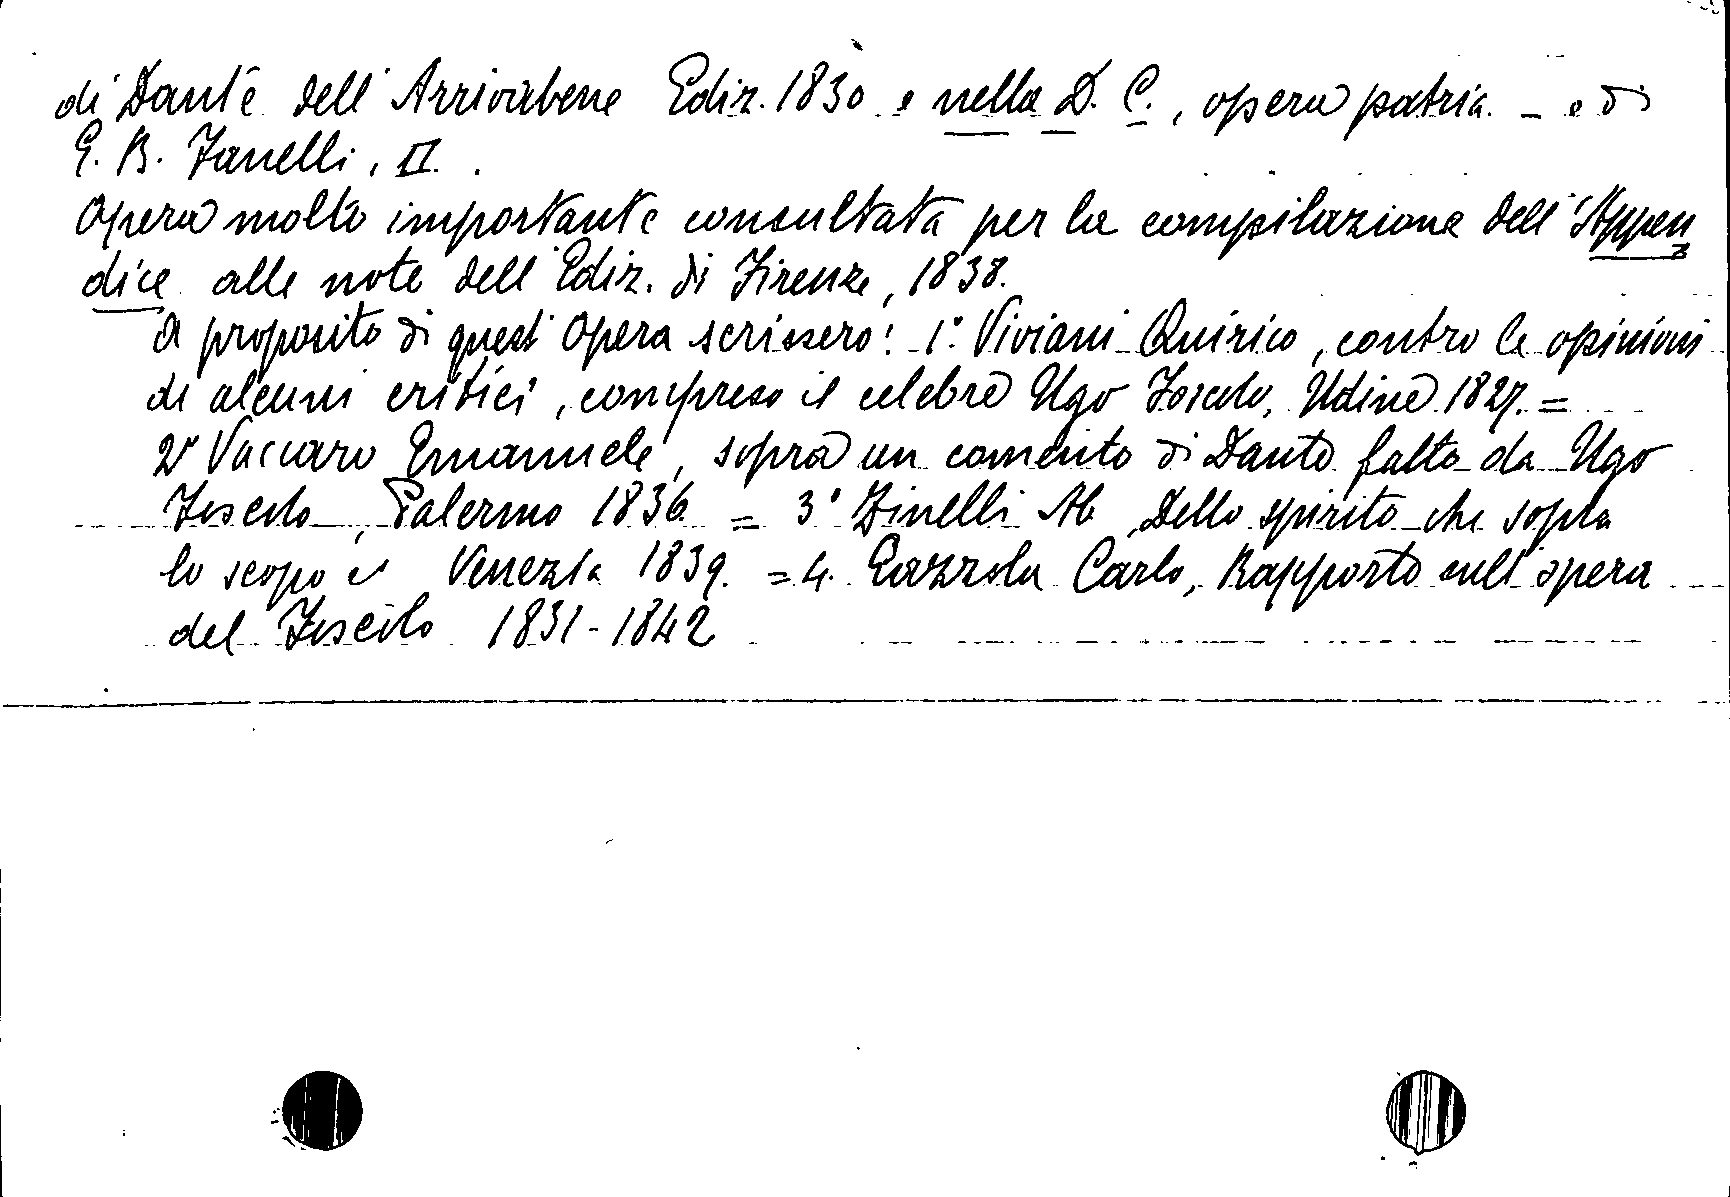 di Dante dell'Arrivabene Ediz. 1830 e nella D. C., opera patria. - e di
G. B. Fanelli, II.
Opera molto importante consultata per la compilazione dell'Appen
dice alle note dell'Ediz. di Firenze, 1838.
A proposito di quest'Opera scrissero: 1° Viviani Quirico, contro le opinioni
di alcuni critici, compreso il celebre Ugo Foscolo, Udine 1827. =
2° Vaccaro Emanuele, sopra un comento di Dante fatto da Ugo
Foscolo, Palermo 1836. = 3° Zinelli Ab. Dello spirito che sopra
lo scopo Venezia 1839. = 4. Gazzola Carlo, Rapporto sull'opera
del Foscolo 1831-1842